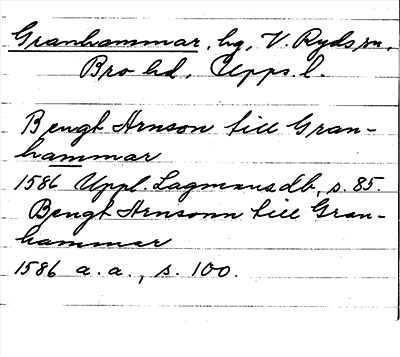 Granhammar, hg, V. Ryds sn,
Bro hd, Upps. l.
Bengt Arnson till Gran-
hammar
1586 Uppl. Lagmansdb, s. 85.
Bengt Arnsonn till Gran-
hammar
1586 a. a., s. 100.